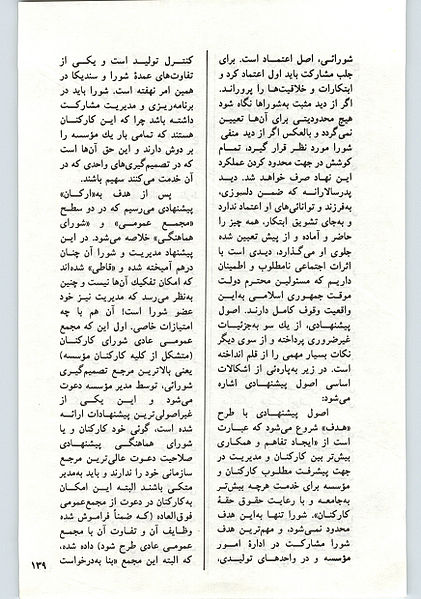 شورائی، اصل اعتماد است. برای
جلب مشارکت باید اول اعتماد کرد و
ابتکارات و خلاقیت‌ها را پروراند.
اگر از دید مثبت به‌شوراها نگاه شود
هیچ محدودیتی برای آن‌ها تعیین
نمی‌گردد و بالعکس اگر از دید منفی
شورا مورد نظر قرار گیرد، تمام
کوشش در جهت محدود کردن عملکرد
این نهاد صرف خواهد شد. دید
پدرسالارانه که ضمن دلسوزی،
به‌فرزند و توانائی‌های او اعتماد ندارد
و به‌جای تشویق ابتکار، همه چیز را
حاضر و آماده و از پیش تعیین شده
جلوی او می‌گذارد، دیدی است با
اثرات اجتماعی نامطلوب و اطمینان
داریم که مسئولین محترم دولت
موقت جمهوری اسلامی به‌این
واقعیت وقوف کامل دارند. اصول
پیشنهادی، از یك سو به‌جزئیات
غیرضروری پرداخته و از سوی دیگر
نکات بسیار مهمی را از قلم انداخته
است. در زیر به‌پاره‌ئی از اشکالات
اساسی اصول پیشنهادی اشاره
می‌شود:
اصول پیشنهادی با طرح
«هدف» شروع می‌شود که عبارت
است از «ایجاد تفاهم و همکاری
بیش‌تر بین کارکنان و مدیریت در
جهت پیشرفت مطلوب کارکنان و
مؤسسه برای خدمت هرچه بیش‌تر
به‌جامعه و با رعایت حقوق حقهٔ
کارکنان». شورا تنها به‌این هدف
محدود نمی‌شود، و مهم‌ترین هدف
شورا مشارکت در ادارهٔ امور
مؤسسه و در واحدهای تولیدی،
کنترل تولید است و یکی از
تفاوت‌های عمدهٔ شورا و سندیکا در
همین امر نهفته است. شورا باید در
برنامه‌ریزی و مدیریت مشارکت
داشته باشد چرا که این کارکنان
هستند که تمامی بار یك مؤسسه را
بر دوش دارند و این حق آن‌ها است
که در تصمیم‌گیری‌های واحدی که در
آن خدمت می‌کنند سهیم باشند.
پس از هدف به‌«ارکان»
پیشنهادی می‌رسیم که در دو سطح
«مجمع عمومی» و «شورای
هماهنگی» خلاصه می‌شود. در این
پیشنهاد مدیریت و شورا آن چنان
درهم آمیخته شده و «قاطی» شده‌اند
که امکان تفکیك آن‌ها نیست و چنین
به‌نظر می‌رسد که مدیریت نیز خود
عضو شورا است! آن هم با چه
امتیازات خاصی. اول این که مجمع
عمومی عادی شورای کارکنان
(متشکل از کلیه کارکنان مؤسسه)
یعنی بالاترین مرجع تصمیم‌گیری
شورائی، توسط مدیر مؤسسه دعوت
می‌شود و این یکی از
غیراصولی‌ترین پیشنهادات ارائه
شده است، گوئی خود کارکنان و یا
شورای هماهنگی پیشنهادی
صلاحیت دعوت عالی‌ترین مرجع
سازمانی خود را ندارند و باید به‌مدیر
متکی باشند البته این امکان
به‌کارکنان در دعوت از مجمع‌عمومی
فوق‌العاده (که ضمناً فراموش شده
وظایف آن و تفاوت آن با مجمع
عمومی عادی طرح شود) داده شده،
که البته این مجمع «بنا به‌درخواست
۱۳۹